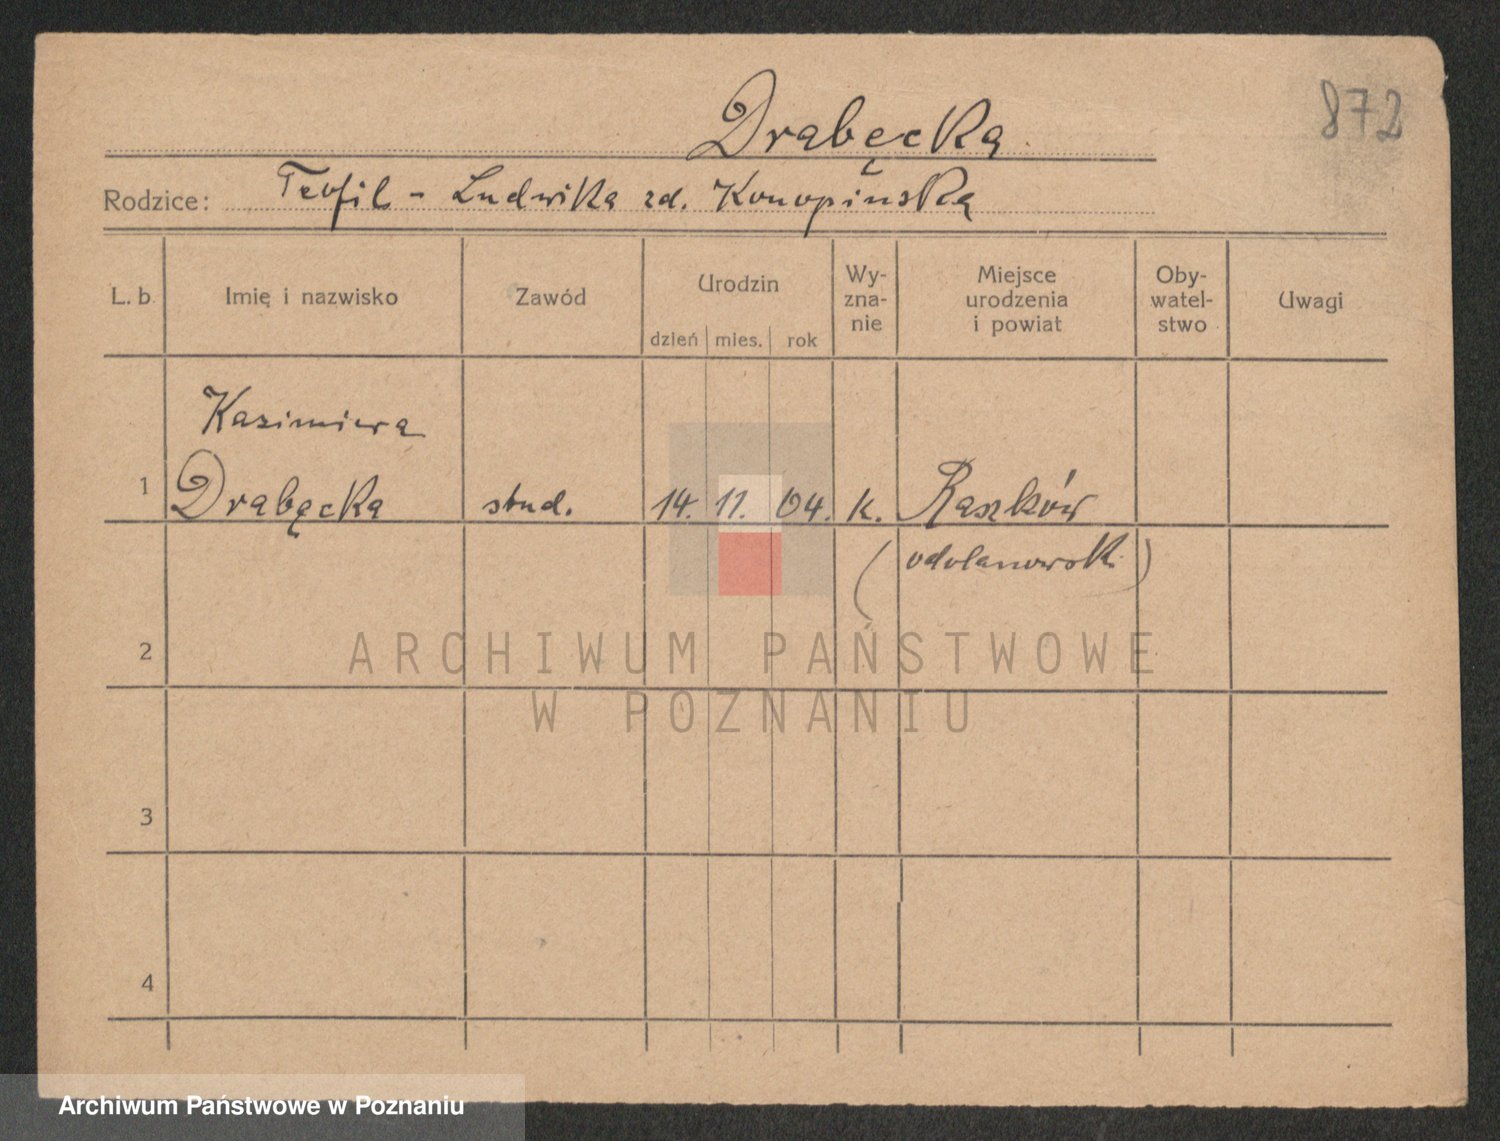 872
Drabęcka
Rodzice: Teofil - Ludwika zd. Konopińska
L. b. Imię i nazwisko Zawód Urodzin Wy-zna-nie Miejsce urodzenia i powiat Oby-watel-stwo Uwagi
dzień mies. rok
Kazimiera
1 Drabęcka stud. 14. 11. 04. k. Raszków
(odolanowski)
2
3
4
ARCHIWUM PAŃSTWOWE
W POZNANIU
Archiwum Państwowe w Poznaniu